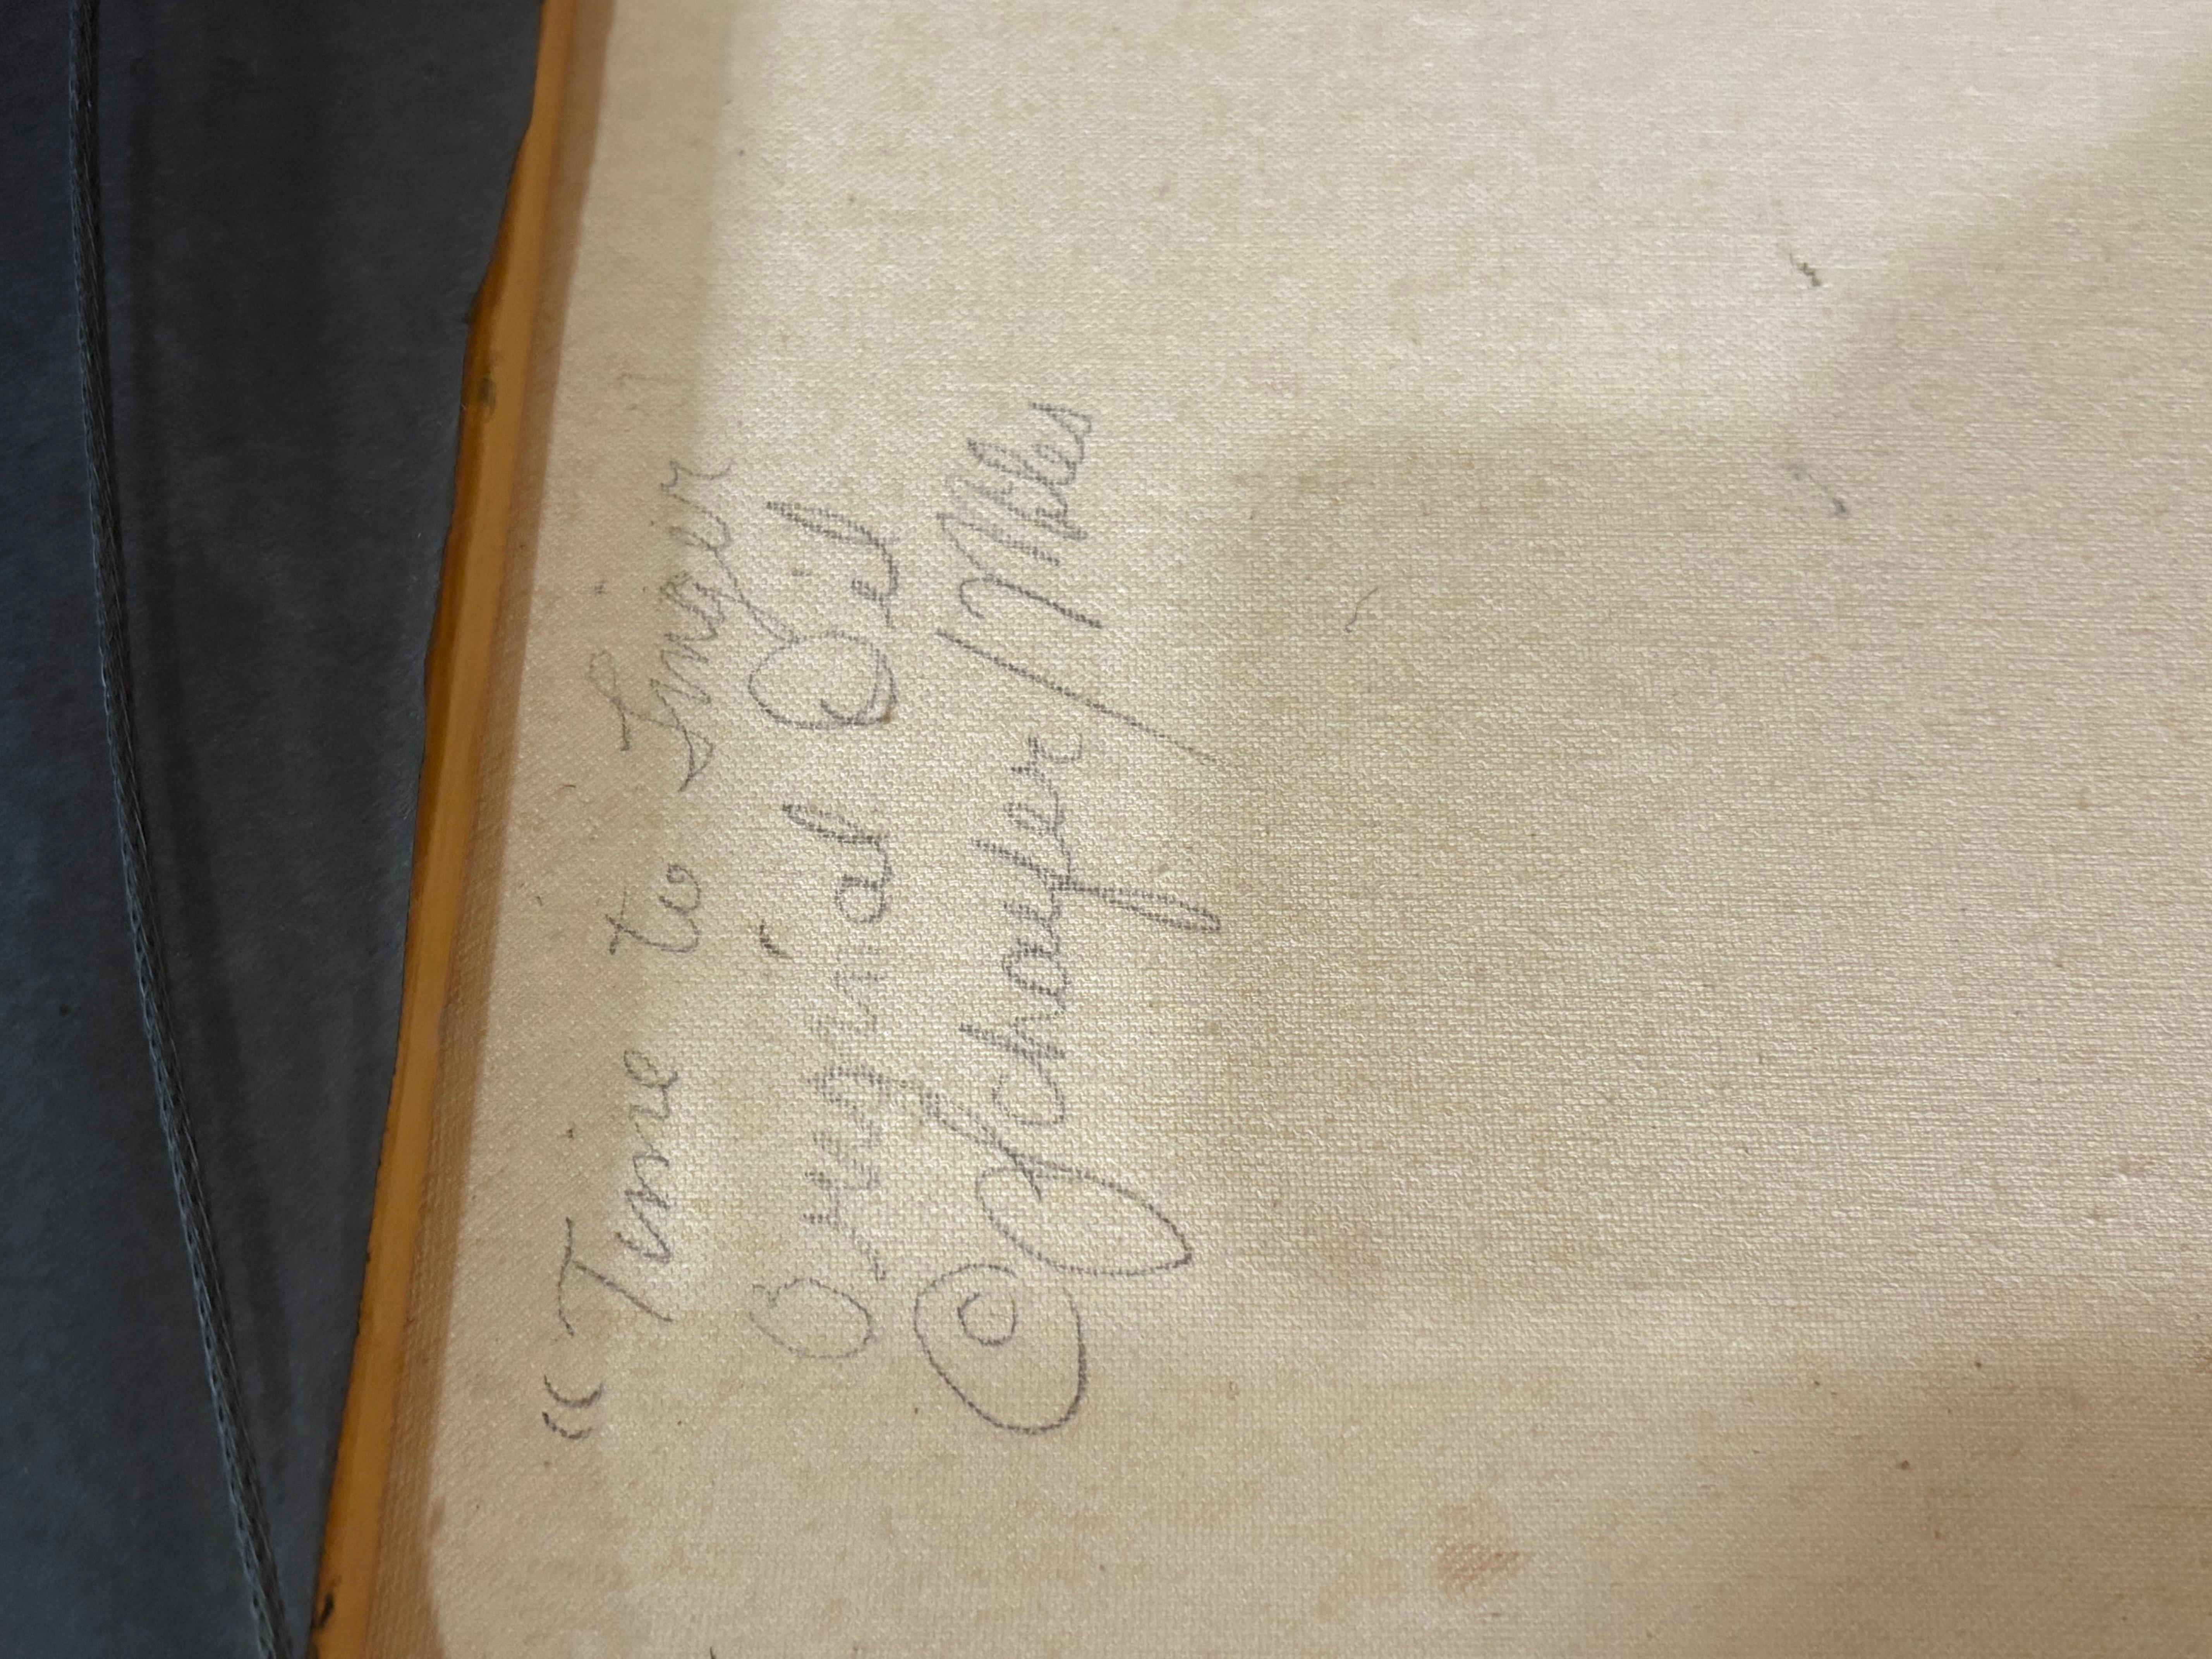 "Time to Linger"
Original Oil
© Schaufer / Mples